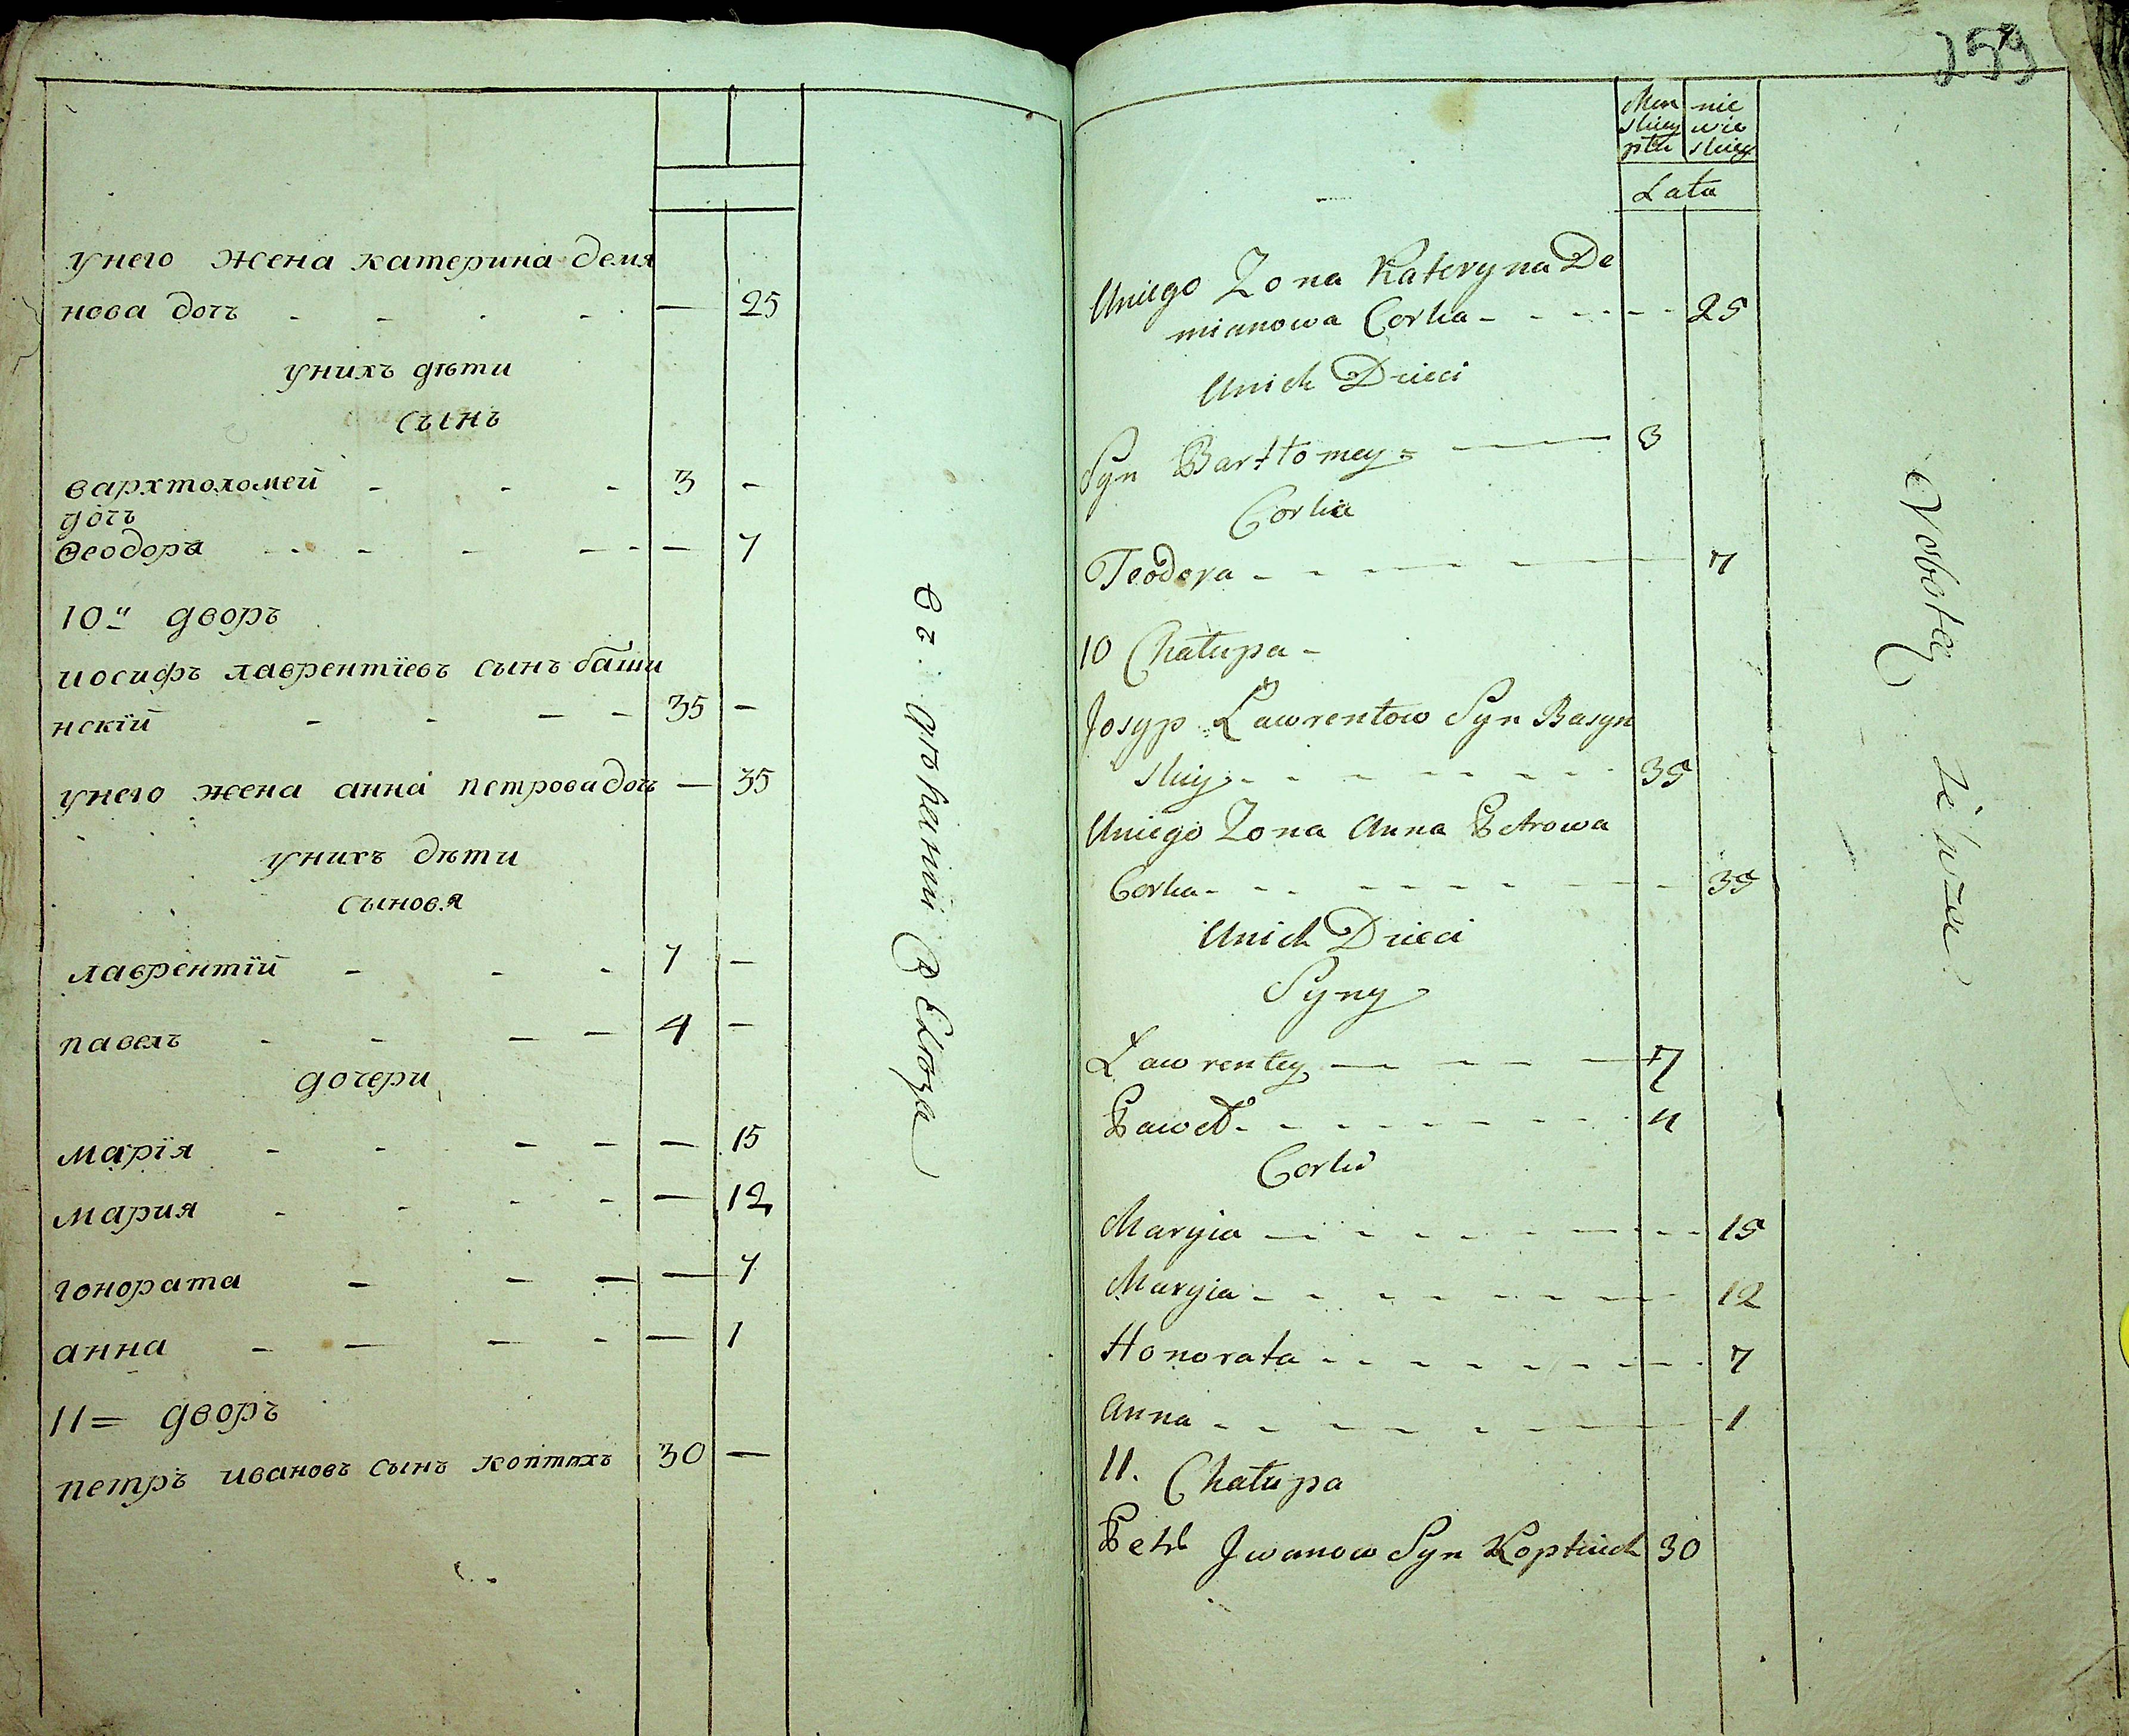 унего жена катерина демя
нова дочъ - - - - — 25
унихъ дѣти
сынъ
вархтоломей - - - 3 -
дочъ
Ѳеодора - - - - - — 7
10й дворъ
иосифъ лаврентїевъ сынъ баши
нскїй - - - - 35 -
унего жена анна петрова дочъ — 35
унихъ дѣти
сыновя
лаврентїй - - - 7 —
павелъ - - - - 4 —
дочери
марїя - - - - — 15
мария - - - - — 12
гонората - - - — 7
анна - - - - — 1
11= дворъ
петръ ивановъ сынъ коптюхъ 30 —
259
Men nie
skiey wie
płci skiey
Lata
Uniego Zona Kateryna De
mianowa Corka - - - - - 25
Unich Dzieci
Syn Bartłomey - — 3
Corka
Teodora - - - - - - 7
10 Chałupa -
Josyp Ławrentow Syn Basyn
skiy - - - - - - - 35
Uniego Zona Anna Petrowa
Corka - - - - - - - 35
Unich Dzieci
Syny
Ławrentey — - - - 7
Paweł - - - - - - - 4
Corki
Maryia - - - - - - - 15
Maryia - - - - - - - 12
Honorata - - - - - - - 7
Anna - - - - - - - 1
11. Chałupa
Petr Jwanow Syn Koptiuch 30